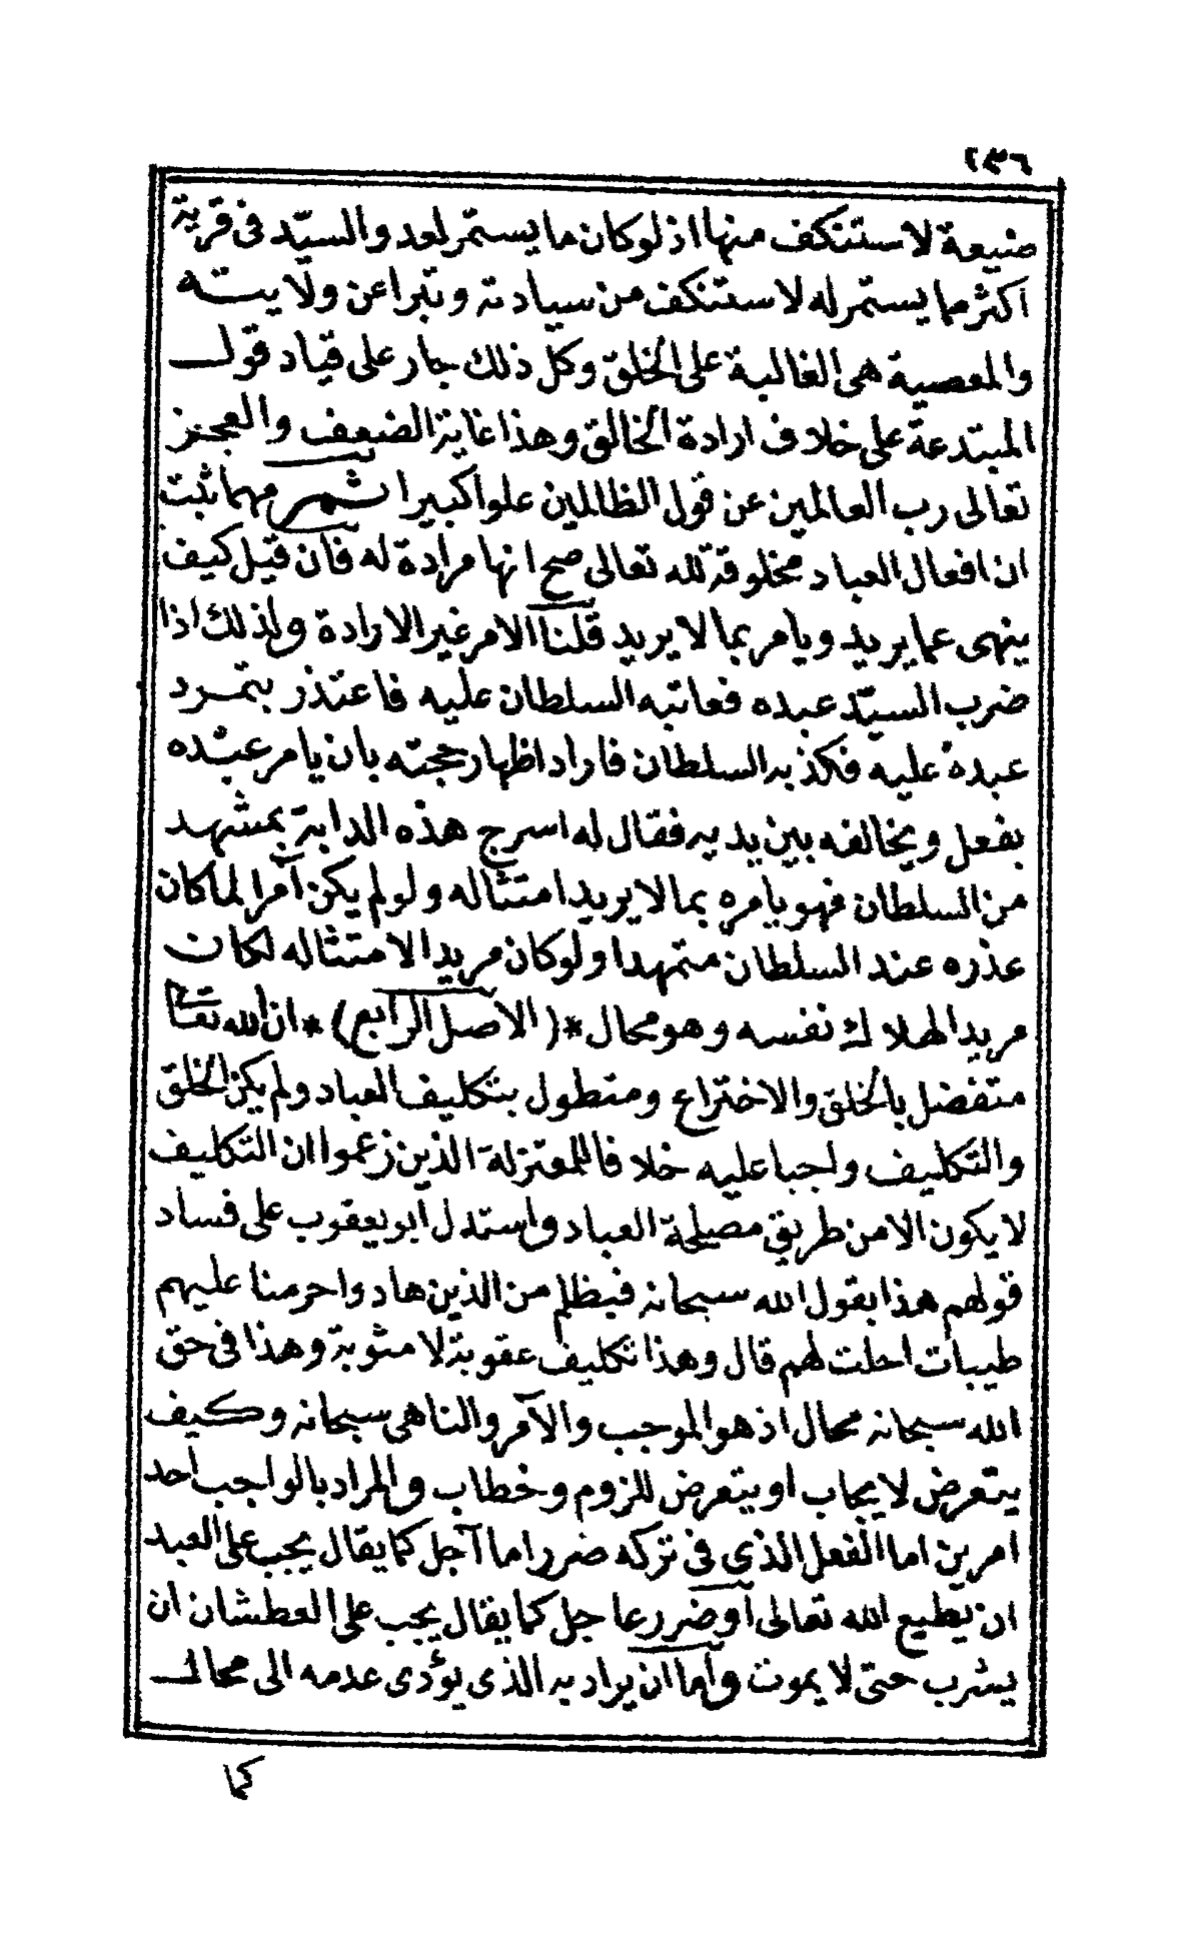 ٢٣٦
ضيعة لاستنكف منها اذ لوكان ما يستمر لعدو السيّد فى قرية
اكثر مما يستمر له لاستنكف من سيادته وتبرا عن ولايته
والمعصية هى الغالبة على الخلق وكل ذلك جار على قياد قول
المبتدعة على خلاف ارادة الخالق وهذا غاية الضعف والعجز
تعالى رب العالمين عن قول الظالمين علوا كبيرا ثم مهما ثبت
ان افعال العباد مخلوقة لله تعالى صح انها مرادة له فان قيل كيف
ينهى عما يريد ويامر بما لا يريد قلنا الامر غير الارادة ولذلك اذا
ضرب السيّد عبده فعاتبه السلطان عليه فاعتذر بتمرد
عبده عليه فكذبه السلطان فاراد اظهار حجته بان يامر عبده
بفعل ويخالفه بين يديه فقال له اسرج هذه الدابة بمشهد
من السلطان فهو يامره بما لا يريد امتثاله ولو لم يكن آمرا لما كان
عذره عند السلطان متمهدا ولوكان مريدا لامتثاله لكان
مريدا لهلاك نفسه وهو محال *(الاصل الرابع)* ان الله تعالى
متفضل بالخلق والاختراع ومتطول بتكليف العباد ولم يكن الخلق
والتكليف واجبا عليه خلافا للمعتزلة الذين زعموا ان التكليف
لا يكون الا من طريق مصلحة العباد واستدل ابو يعقوب على فساد
قولهم هذا بقول الله سبحانه فبظلم من الذين هادوا حرمنا عليهم
طيبات احلت لهم قال وهذا تكليف عقوبة لا مثوبة وهذا فى حق
الله سبحانه محال اذ هو الموجب والآمر والناهى سبحانه وكيف
يتعرض لايجاب او يتعرض للزوم وخطاب والمراد بالواجب احد
امرين اما الفعل الذى فى تركه ضرر اما آجل كما يقال يجب على العبد
ان يطيع الله تعالى او ضرر عاجل كما يقال يجب على العطشان ان
يشرب حتى لا يموت واما ان يراد به الذى يؤدى عدمه الى محال
كما